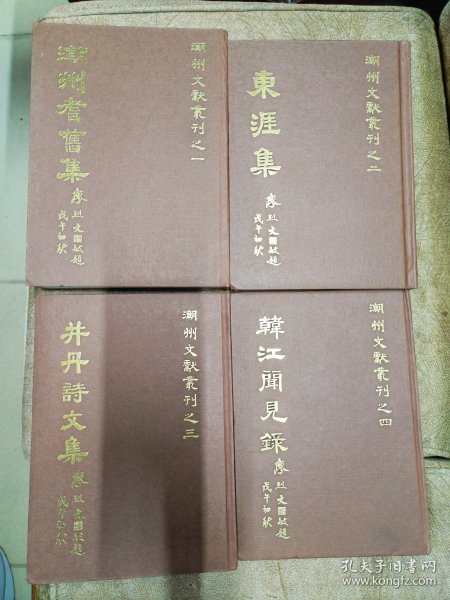 潮州文獻叢刊之一
潮州耆舊集
廖烈文敬題
戊午初秋
潮州文獻叢刊之二
東涯集
廖烈文敬題
戊午初秋
潮州文獻叢刊之三
井丹詩文集
廖烈文敬題
戊午初秋
潮州文獻叢刊之四
韓江聞見錄
廖烈文敬題
戊午初秋
孔夫子旧书网
www.kongfz.com